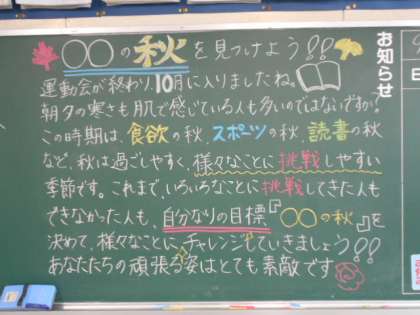 ○○の秋を見つけよう!!
運動会が終わり、10月に入りましたね。
朝夕の寒さも肌で感じている人も多いのではないですか?
この時期は、食欲の秋、スポーツの秋、読書の秋
など、秋は過ごしやすく、様々なことに挑戦しやすい
季節です。これまで、いろいろなことに挑戦してきた人も
できなかった人も、自分なりの目標『○○の秋』を
決めて、様々なことに、チャレンジしていきましょう!!
あなたたちの頑張る姿はとても素敵です
お知らせ